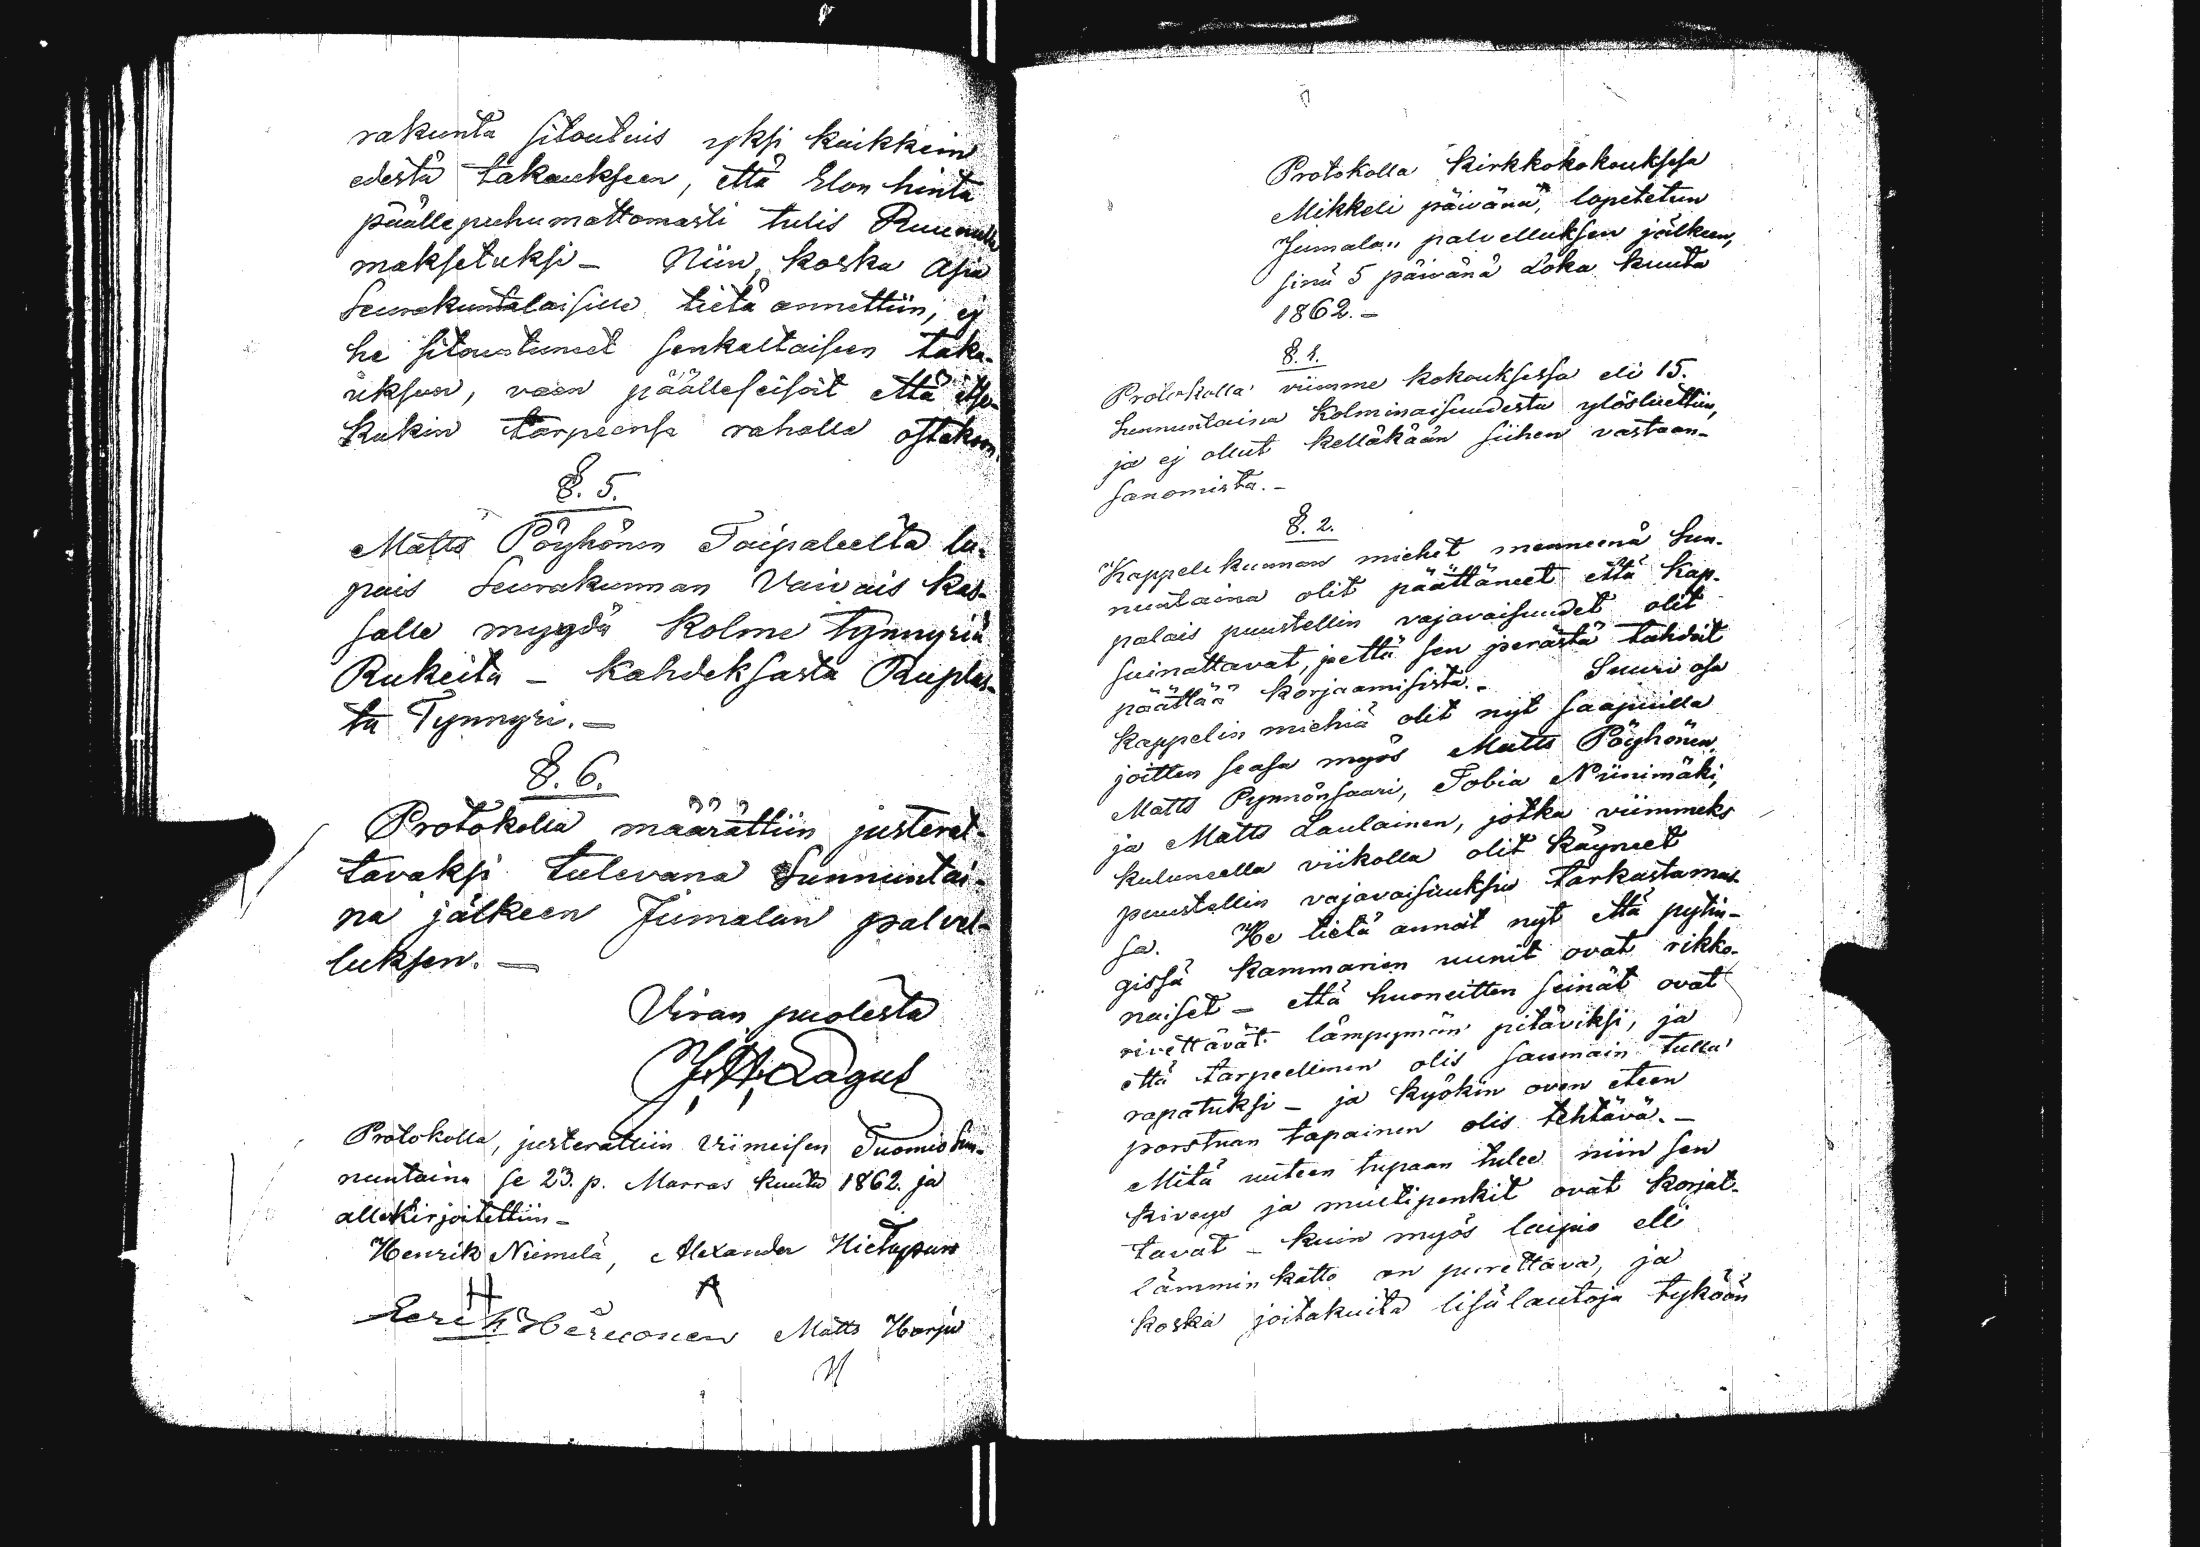 rakunta sitoutuis yksi kaikkein
edestä takaukseen, että Elon hinta
päällepuhumattomasti tulis Ruunulle
maksetuksi – Niin, koska Asia
Seurakuntalaisille tietä annettiin, ej
he sitoutuneet senkaltaiseen taka-
ukseen, vaan päälleseisoit että itse-
kukin tarpeensa raholla ostakoon.
§. 5.
Matts Pöyhönen Taipaleelta lu-
pais Seurakunnan Vaivais kas-
salle myydä Kolme Tynnyriä
Rukeita – Kahdeksasta Ruplas-
ta Tynnyri. –
§. 6.
Protokolla määrättiin justerat-
tavaksi tulevana Sunnuntai-
na jälkeen Jumalan palvel-
luksen. –
Viran puolesta
J. H. Lagus
Protokolla, justerattiin Viimeisen Tuomio Sun-
nuntaina se 23. p. Marras kuuta 1862. ja
allekirjoitettiin –
Henrik Niemelä, Alexander Hietapuro
H A
Eerik Härkönen Matts Harju
M
Protokolla Kirkkokokouksesa
Mikkeli päivänä, lopetetun
Jumalan palvelluksen jälkeen,
sinä 5 päivänä Loka kuuta
1862. –
§. 1.
Protokolla viimme kokouksessa eli 15.
Sunnuntaina Kolminaisuudesta ylösluettiin,
ja ej ollut kelläkään siihen vastaan-
sanomista. –
§. 2.
Kappelikunnan miehet menneenä Sun-
nuntaina olit päättäneet että Kap-
palais puustellin vajavaisuudet olit
suinattavat, jettä sen perästä tahdoit
päättää korjaamisista. – Suuri osa
Kappelin miehiä olit nyt saapuilla
joitten seasa myös Matts Pöyhönen,
Matts Pynnönsaari, Tobia Niinimäki,
ja Matts Laulainen, jotka viimmeks
kuluneella viikolla olit käyneet
puustellin vajavaisuuksia tarkastamas-
sa. He tietä annoit nyt että pytin-
gissä Kammarien uunit ovat rikko-
naiset – että huoneitten seinät ovat
rivettävät lämpymän pitäviksi, ja
että tarpeellinen olis saumain tulla
rapatuksi – ja Kyökin oven eteen
porstuan tapainen olis tehtävä. –
Mitä uuteen tupaan tulee niin sen
kiveys ja multipenkit ovat korjat-
tavat – kuin myös laipio eli
lämmin katto on purettava, ja
koska joitakuita lisälautoja tykään